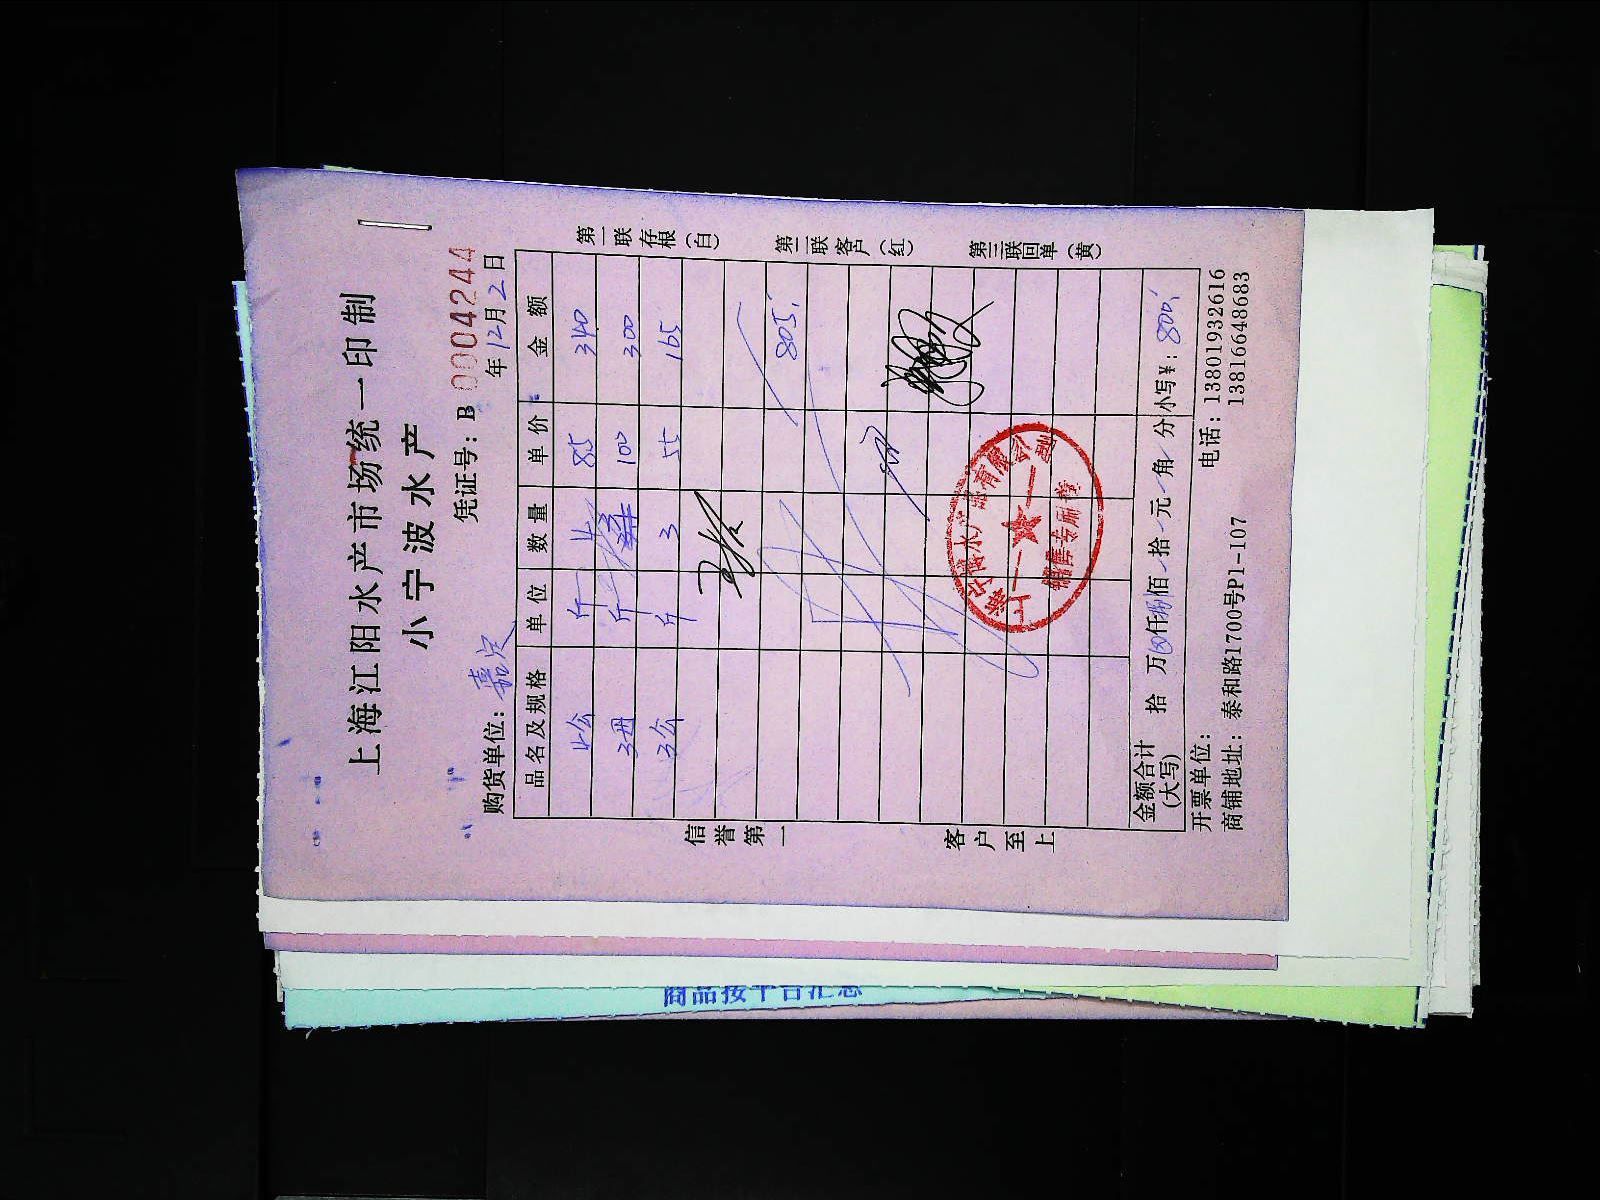 上海江阳水产市场统一印制
小宁波水产
凭证号：B 0004244
购货单位：嘉定 年12月2日
品名及规格 单位 数量 单价 金额
4公 斤 4 85 340
3母 斤 100 300
3公 斤 3 55 165
805
金额合计(大写) 拾 万 仟捌佰 拾 元 角 分 小写￥：800
开票单位： 电话：13801932616
商铺地址：泰和路1700号P1-107 13816648683
信誉第一 客户至上
第一联存根（白）
第二联客户（红）
第三联回单（黄）
销售专用章
商品按平台汇总